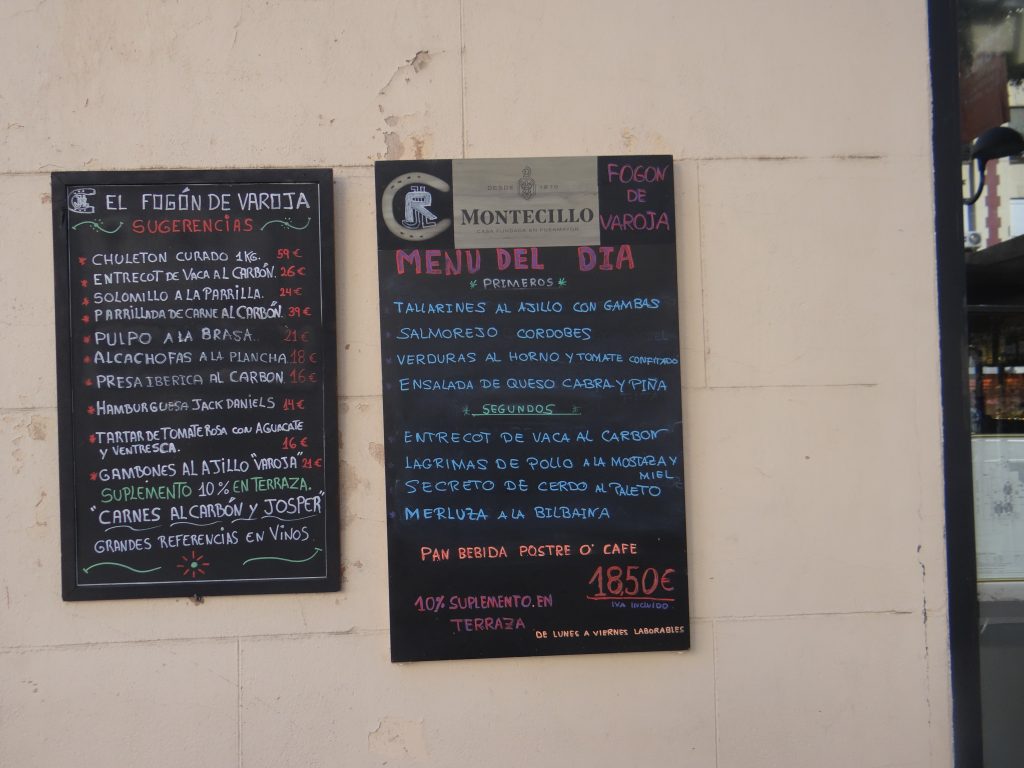 EL FOGÓN DE VAROJA
SUGERENCIAS
* CHULETON CURADO 1KG. 59€
* ENTRECOT DE VACA AL CARBÓN. 26€
* SOLOMILLO A LA PARRILLA. 24€
* PARRILLADA DE CARNE AL CARBÓN. 39€
* PULPO A LA BRASA. 21€
* ALCACHOFAS A LA PLANCHA 18€
* PRESA IBERICA AL CARBON. 16€
* HAMBURGUESA JACK DANIELS 14€
* TARTAR DE TOMATE ROSA CON AGUACATE
Y VENTRESCA. 16€
* GAMBONES AL AJILLO "VAROJA" 21€
SUPLEMENTO 10% EN TERRAZA.
"CARNES AL CARBÓN Y JOSPER"
GRANDES REFERENCIAS EN VINOS.
R
DESDE 1870
MONTECILLO
CASA FUNDADA EN FUENMAYOR
FOGON
DE
VAROJA
MENU DEL DIA
* PRIMEROS *
TALLARINES AL AJILLO CON GAMBAS
SALMOREJO CORDOBES
VERDURAS AL HORNO Y TOMATE CONFITADO
ENSALADA DE QUESO CABRA Y PIÑA
* SEGUNDOS *
ENTRECOT DE VACA AL CARBON
LAGRIMAS DE POLLO A LA MOSTAZA Y
MIEL
SECRETO DE CERDO AL PALETO
MERLUZA A LA BILBAINA
PAN BEBIDA POSTRE O' CAFE
18,50€
IVA INCLUIDO
10% SUPLEMENTO EN
TERRAZA
DE LUNES A VIERNES LABORABLES